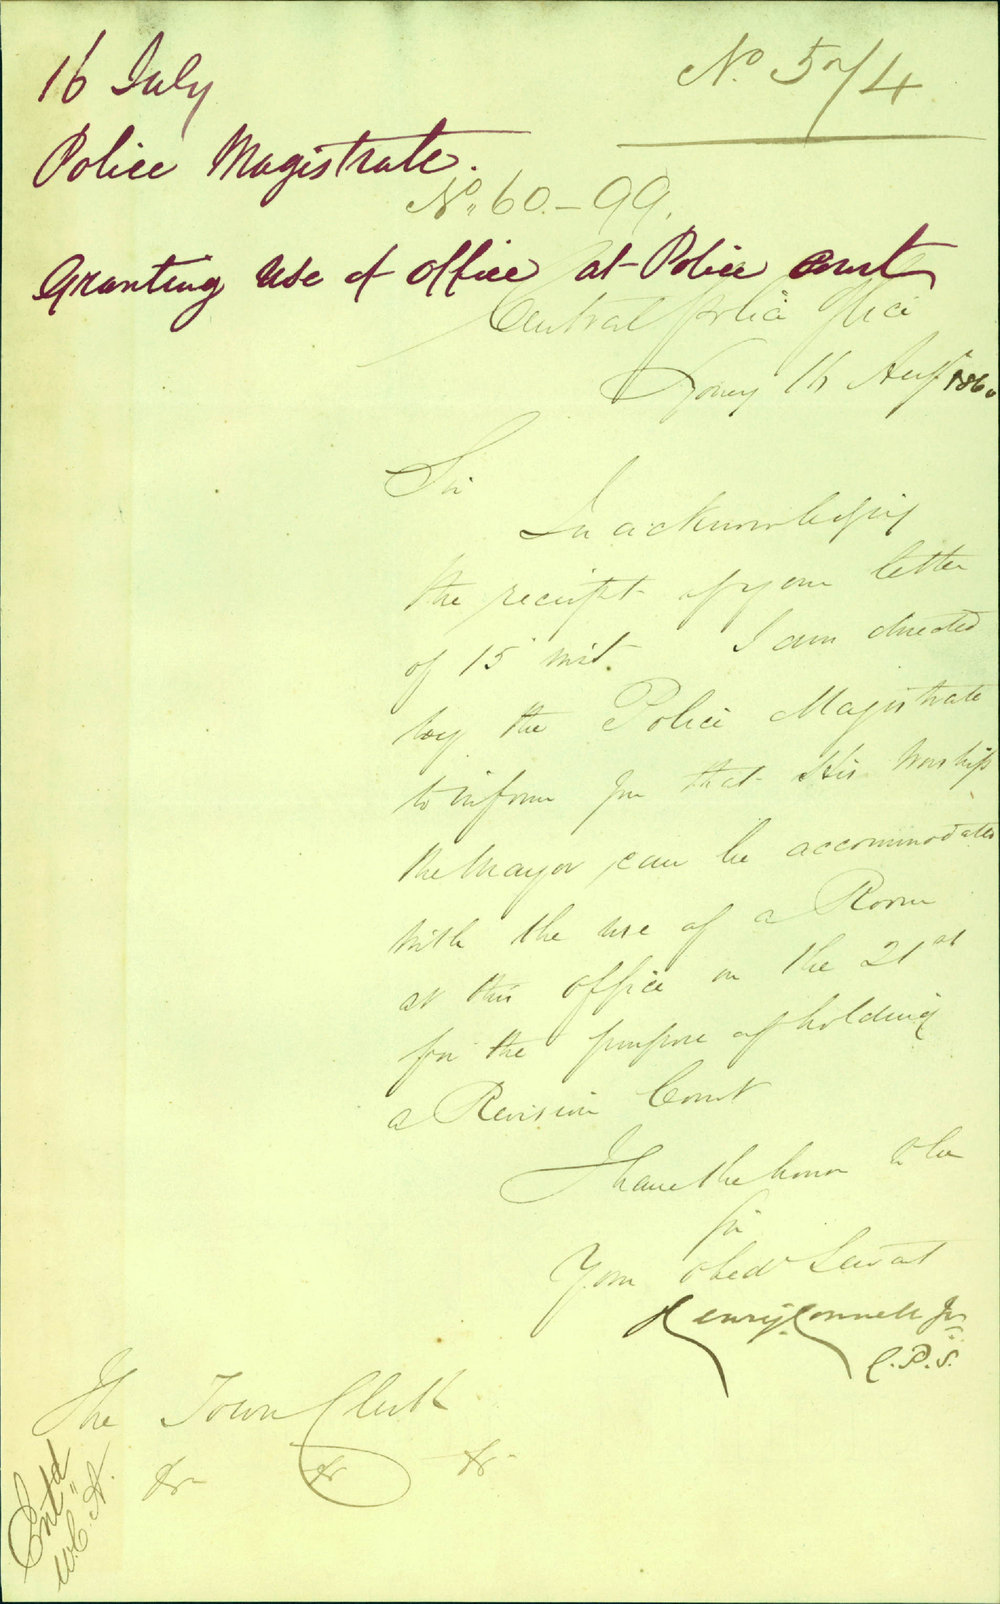 16 July
No 574
Police Magistrate.
No. 60.-99.
Granting use of office at Police Court
Central Police Office
Sydney 16 Augt 1860
Sir
In acknowledging
the receipt of your letter
of 15 inst. I am directed
by the Police Magistrate
to inform you that His Worship
the Mayor can be accommodated
with the use of a Room
at this office on the 21st
for the purpose of holding
a Revision Court
I have the honor to be
Sir
Your obedt Servant
Henry Connell Jr
C.P.S.
The Town Clerk
&c &c &c
Ent'd
W.C.A.